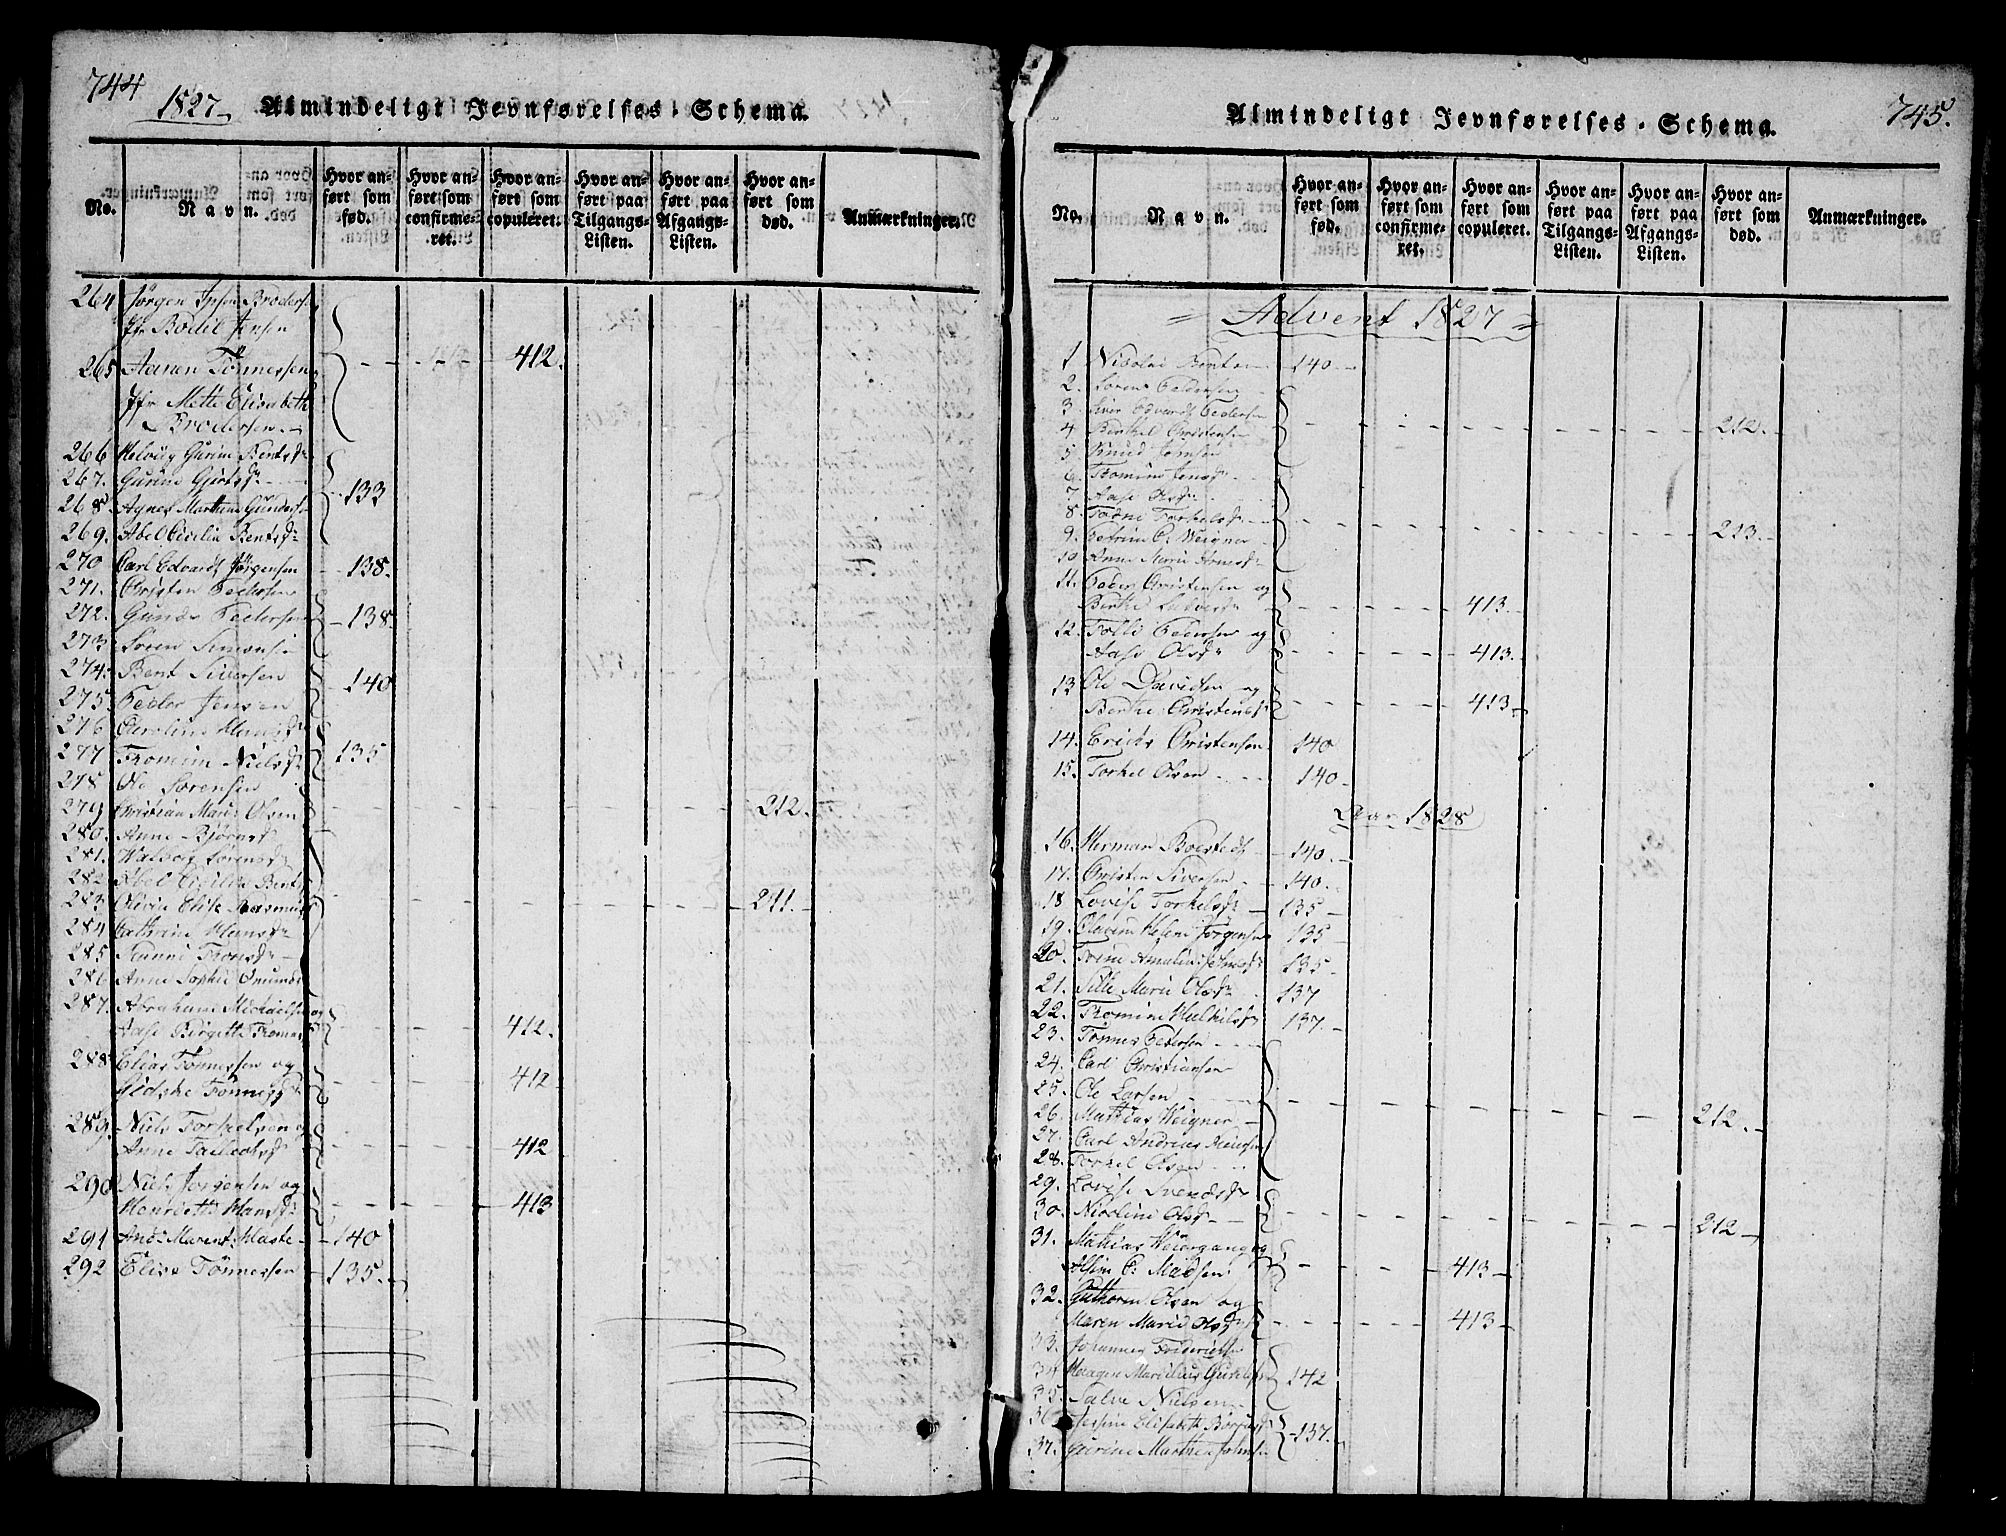 744
1827. Almindeligt Jevnførelses-Schema.
No.
Navn.
Hvor an-
ført som
fød.
Hvor an-
ført som
confirme-
ret.
Hvor an-
ført som
copuleret.
Hvor an-
ført paa
Tilgangs-
Listen.
Hvor an-
ført paa
Afgangs-
Listen.
Hvor an-
ført som
død.
Anmærkninger.
264 Jørgen Ipsen Brodersen
Jfr Bodel Jensen
265 Aanen Tönnessen 412.
Jfr Mette Elisabeth
Brodersen
266 Helvig Gurine Bentsd
267. Gurine
268 Agnes Marthine Gunders 133
269. Abel Cecilia Bentsd
270 Carl Edvard Jörgensen 138.
271. Christen Pedersen
272. Gunder Pedersen 138
273 Sören Simons
274. Bent Siversen 140
275 Peder Jensen
276 Caroline Hansd
277 Tromine Nielsd 135
278 Ole Sörensen
279 Christian Marius Olsen 212.
280. Anne Björnsd
281. Walborg Sörensd
282 Abel Cicilia Bents
283 Olivia Elise Rasmusd 211.
284 Cathrine Hansd
285 Gunni Thomsd
286 Anne Sophie
287. Abraham Michaelsen og
Aase Birgitte Tromes 412.
288 Elias Tönnessen og
Sidske Tönnesd 412
289. Niels Torkelsen og
Anne 412
290 Niels Jörgensen og
Henriette Hansd 413
291 And: Marent: Haste 140
292 Elise Tönnessen 135.
Almindeligt Jevnførelses-Schema. 745.
No.
Navn.
Hvor an-
ført som
fød.
Hvor an-
ført som
confirme-
ret.
Hvor an-
ført som
copuleret.
Hvor an-
ført paa
Tilgangs-
Listen.
Hvor an-
ført paa
Afgangs-
Listen.
Hvor an-
ført som
død.
Anmærkninger.
Advent 1827
1 Nicolai Bentsen 140
2. Sören Pedersen
3. Siver Edvard Pedersen
4 Berthel Christensen 212.
5 Knud Jensen
6. Tromine Jensd
7. Aase Olsd
8. Tadne Torkelsd
9. Petrine C. Weigner 213.
10 Anne Marie
11. Peder Christensen og
Berthe 413.
12. Tolli Pedersen og
Aase Olsd 413.
13 Ole Davidsen og
Berthe Christensd 413.
14. Erich Christensen 140
15. Torkel Olsen 140
Aar 1828
16. Herman Boestedt 140.
17. Christen Siversen 140.
18 Lovise Torkelsd 135
19. Olavine Helene Jörgensen 135
20. Trine Amalie 135
21. Sille Marie Olsd 137
22. Tromine 137.
23. Tönnes Pedersen
24. Carl Christiansen
25. Ole Larsen
26. Mathias Weigner 212.
27. Carl Andreas
28. Torkel Olsen
29. Lovise Svendsd
30. Nicoline Olsd 212
31. Mathias Weiergang og
C. Madsen 413
32. Guthorm Olsen og
Maren Marie Olsd 413
33. Johannes Frideriksen
34 Haagen Marselius 142
35. Salve Nielsen
36 Elisabeth Börresd
37. Gurine Marthea Johns 137.